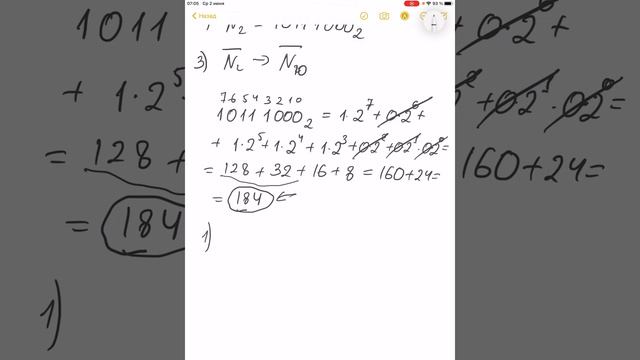 07:05 Ср 2 июня 93 %
Назад
N₂ = 10111000₂
3) N̅₂ → N̅₁₀
7 6 5 4 3 2 1 0
10111000₂ = 1·2⁷ + 0·2⁶ +
+ 1·2⁵ + 1·2⁴ + 1·2³ + 0·2² + 0·2¹ · 0·2⁰ =
= 128 + 32 + 16 + 8 = 160 + 24 =
= 184 ←
1)